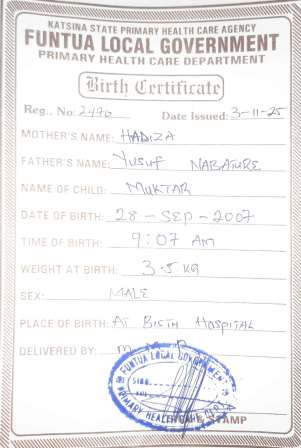 KATSINA STATE PRIMARY HEALTH CARE AGENCY
FUNTUA LOCAL GOVERNMENT
PRIMARY HEALTH CARE DEPARTMENT
Birth Certificate
Reg.. No: 2490 Date Issued: 3-11-25
MOTHER'S NAME: HADIZA
FATHER'S NAME: Yusuf NABATURE
NAME OF CHILD: MUKTAR
DATE OF BIRTH: 28 - SEP - 2007
TIME OF BIRTH: 9:07 AM
WEIGHT AT BIRTH: 3.5 KG
SEX: MALE
PLACE OF BIRTH: AT BIRTH HOSPITAL
DELIVERED BY:
FUNTUA LOCAL GOVERNMENT
SIGN.
PRIMARY HEALTH CARE
STAMP